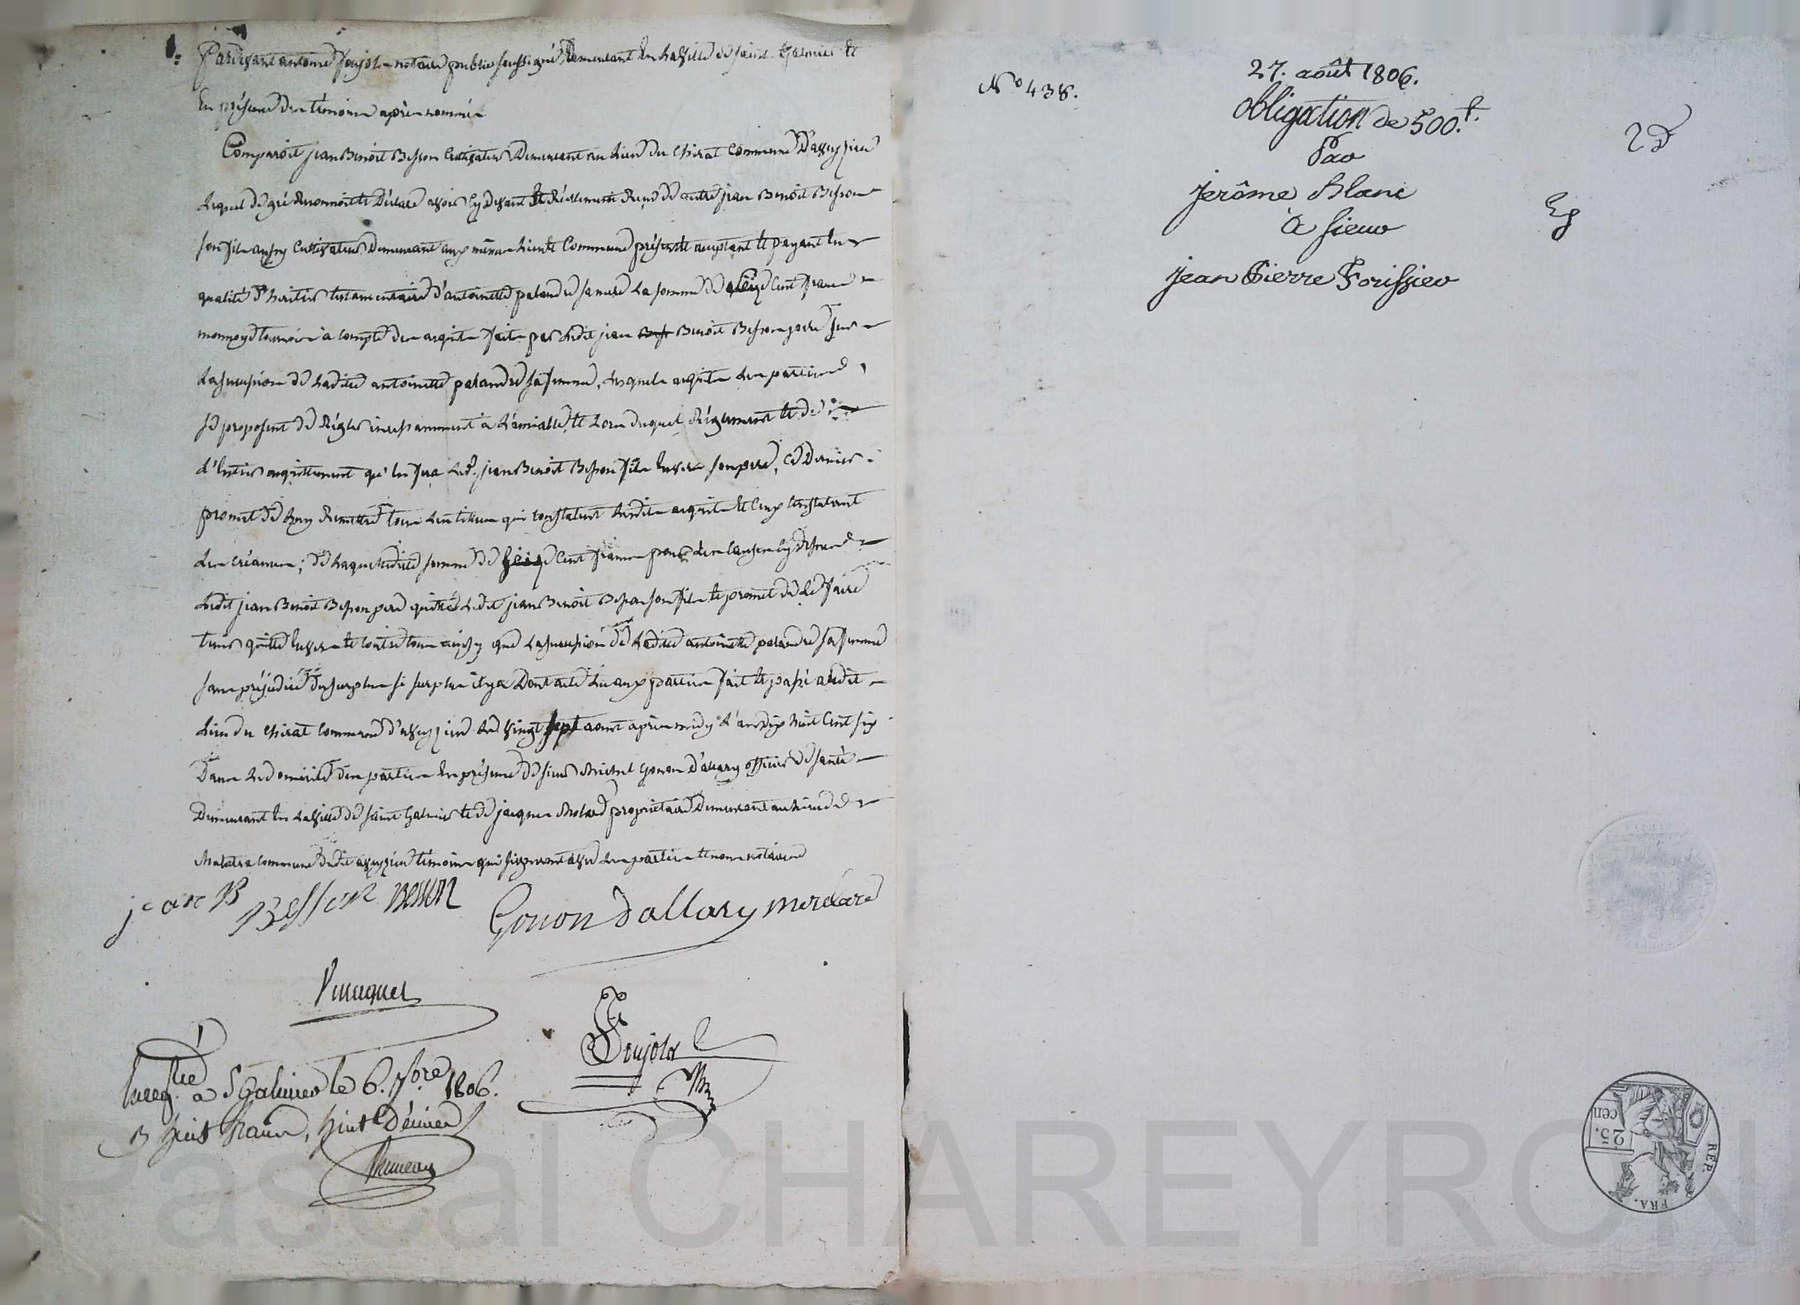 Pardevant antoine Poujol notaire public soussigné Demeurant En la Ville de saint Galmier Et
En présence des témoins après nommés
Comparoit jean Benoit Besson Cultivateur Demeurant au Lieu du Chirat Commune D'aveyzieu
Lequel de gré Reconnoit et Déclare avoir Cy devant Et Réellement Reçu de autre jean Benoit Besson
son fils aussy Cultivateur Demeurant aux mêmes Lieu et Commune présent et acceptant et payant En
qualité d'heritier testamentaire d'antoinette palandre sa mere La somme de seize Cent francs
monnoye tournois à compte des acquits faits par Ledit jean Benoit Besson pere sur
La succession de Ladite antoinette palandre sa femme, Lesquels acquits Les parties
se proposent de Régler incessamment à L'amiable, et Lors duquel Réglement et de
d'Entier acquittement qu'en fera Led. jean Benoit Besson fils Envers son pere, Ce Dernier
promet de Luy Remettre tous Les titres qui constatent Lesdits acquits et Ceux Constatant
Les créances ; De Laquelle dite somme de seize Cent francs pour Les Causes Cy dessus
Ledit jean Benoit Besson pere quitte Ledit jean Benoit Besson son fils et promet de Le faire
tenir quitte Envers et Contre tous ainsy que La succession de Ladite antoinette palandre sa femme
sans préjudice Du surplus si surplus il y a Dont acte Lu aux parties fait et passé audit
Lieu du Chirat Commune d'aveyzieu Le Vingt sept aoust après midy L'an dix huit Cent six
Dans Le domicile des parties En présence de sieur Michel Gonon D'allary officier de santé
Demeurant En La Ville de saint Galmier et de jacques proprietaire Demeurant au Lieu de
Commune dudit aveyzieu témoins qui signeront avec Les parties et nous notaire
jean B Besson Besson Gonon Dallary
Poujol
Enreg.tré à St Galmier le 6. 7bre 1806.
R huit francs, huit Décimes
N° 438.
27. août 1806.
obligation de 500.f.
Par
jerôme Blanc
à sieur
jean Pierre Forissier
2 D
REP. FRA.
25. cen
Pascal CHAREYRON